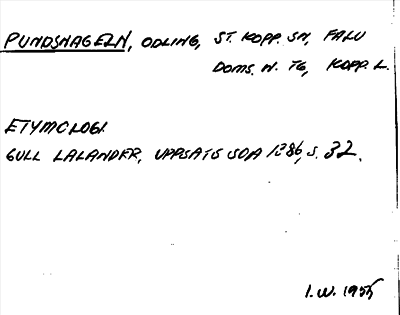 PUNDSNAGELN, ODLING, ST. KOPP. SN, FALU
DOMS. N. TG, KOPP. L.
ETYMOLOGI.
GULL LALANDER, UPPSATS SOA 1386, S. 32.
I. W. 1955